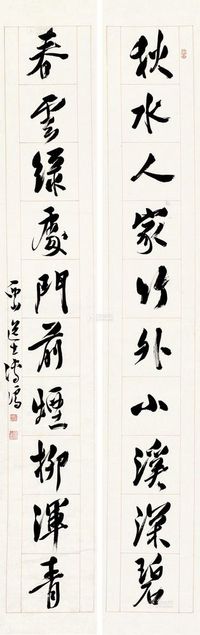 秋水人家竹外小溪深碧
春雲綠處門前煙柳渾青
西山逸士溥儒